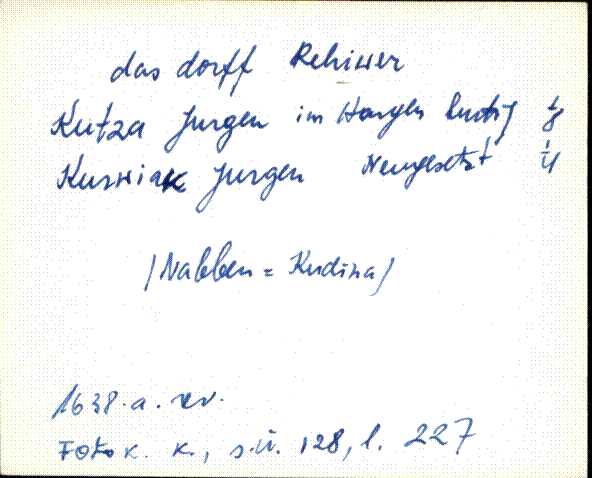 das dorff Rehiwer
Kutza Jurgen im Hangen 1/8
Kurwiak Jurgen Neugesetzt 1/4
/Nabben = Kudina/
1638. a. rev.
Fotok. K., s.ü. 128, l. 227